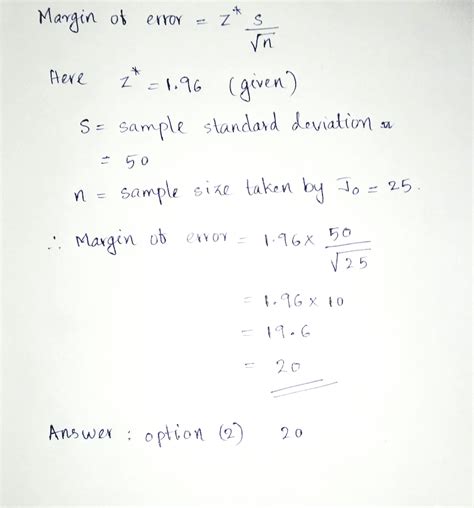 Margin of error = z* s/√n
Here z* = 1.96 (given)
S = sample standard deviation
= 50
n = sample size taken by Jo = 25.
∴ Margin of error = 1.96 × 50/√25
= 1.96 × 10
= 19.6
= 20
Answer : option (2) 20